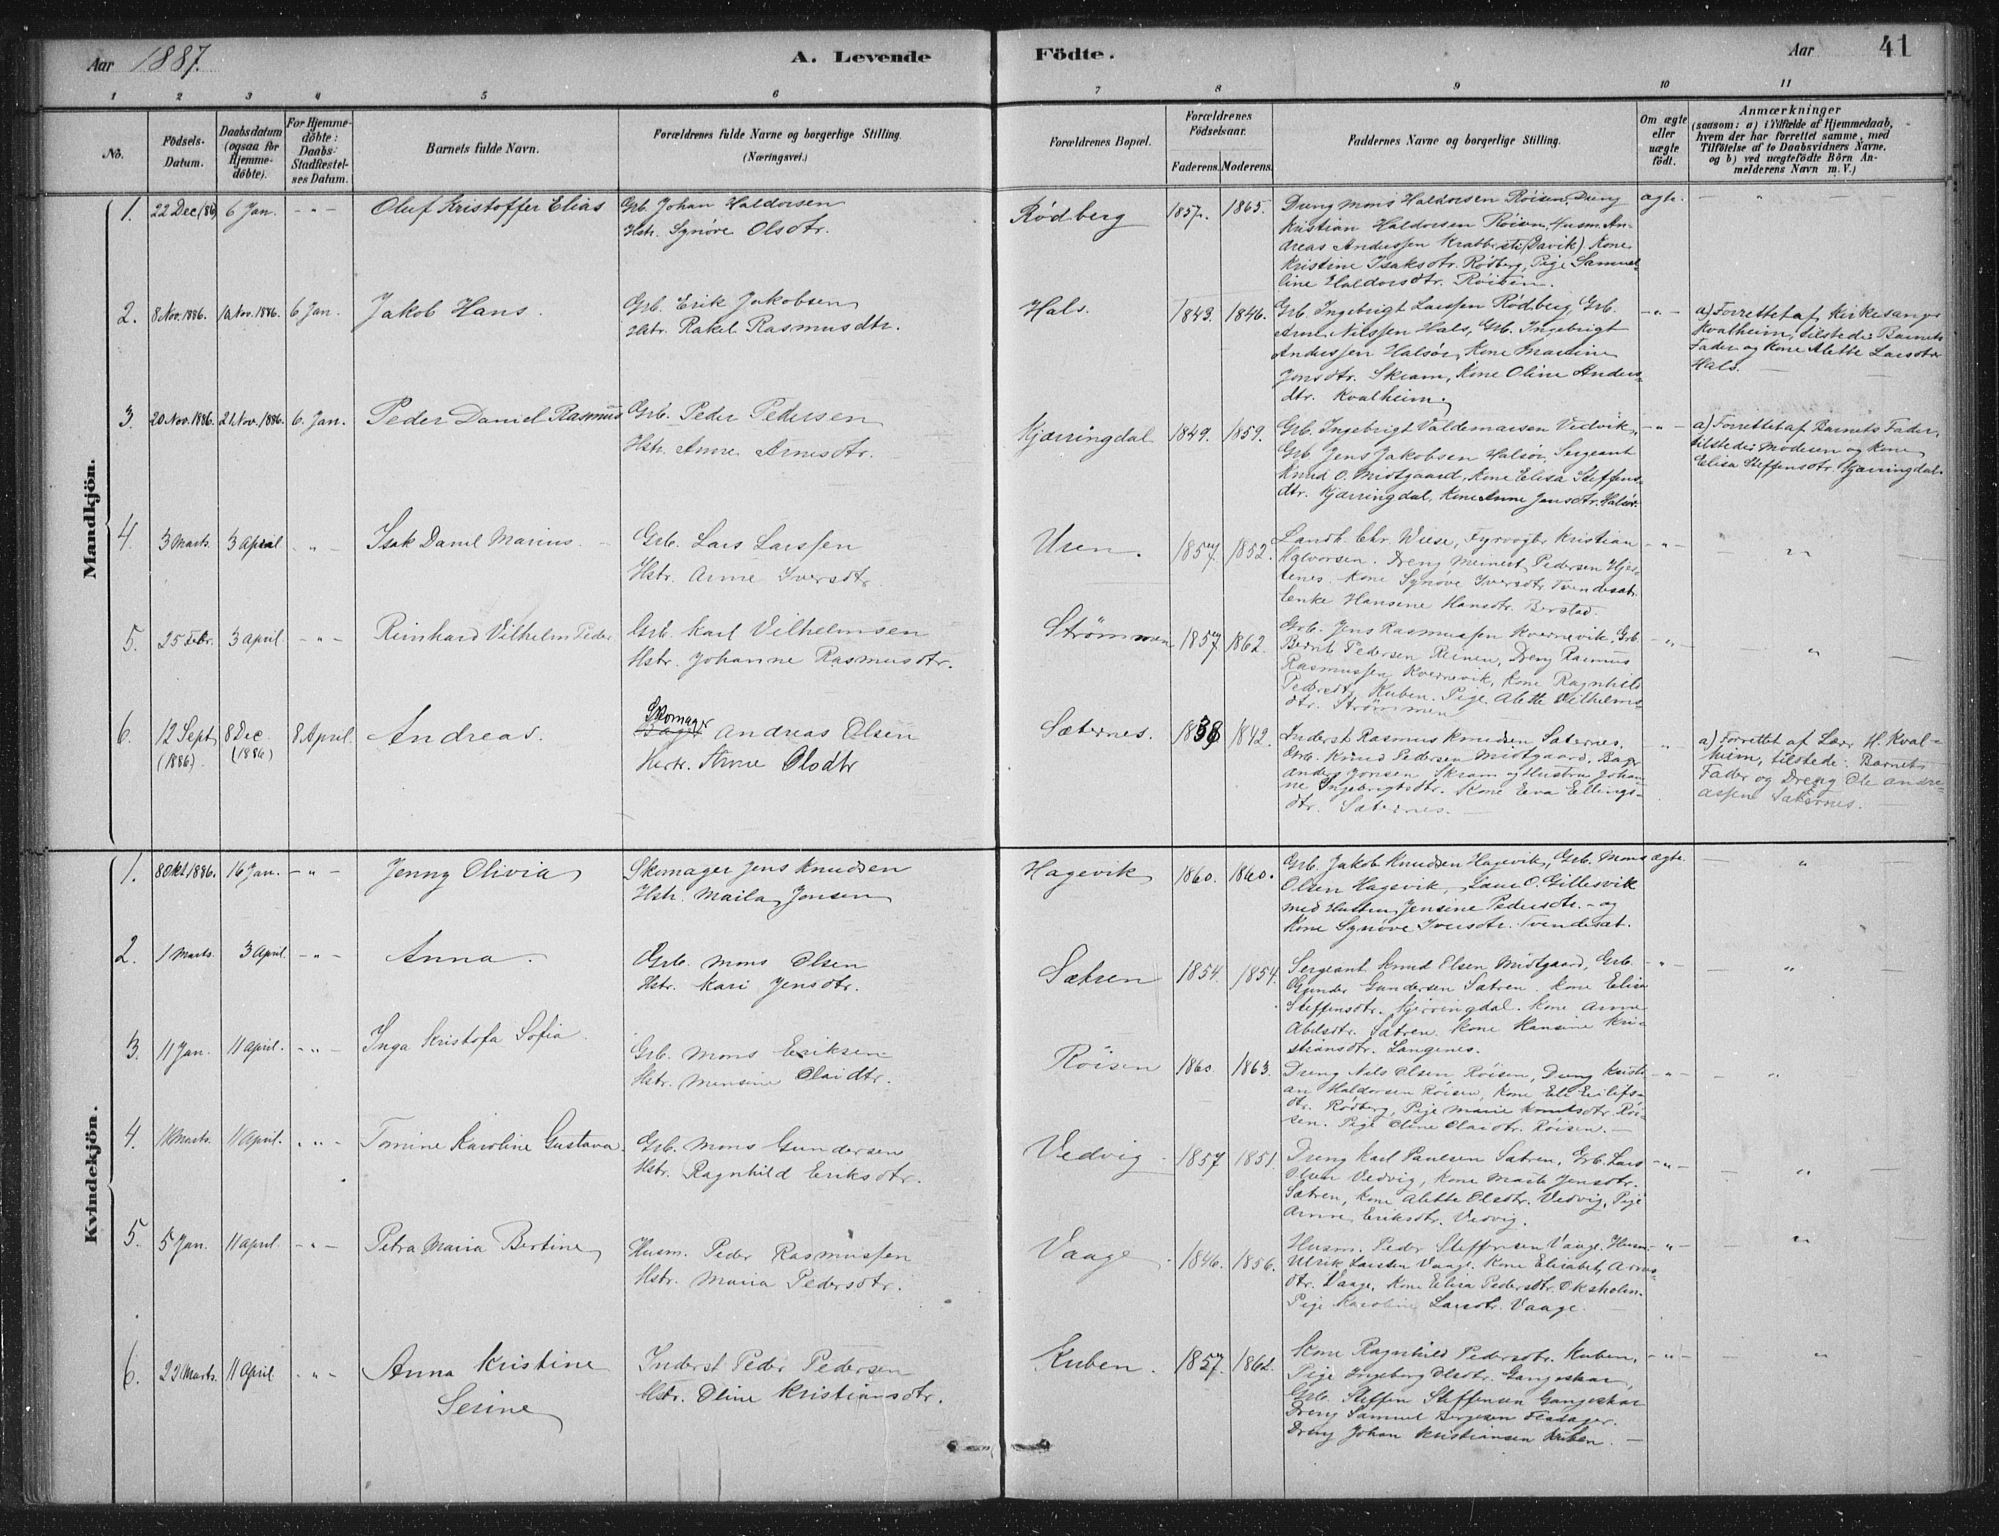 Aar 1887.
A. Levende
Födte.
Aar
41
1 2 3 4 5 6 7 8 9 10 11
No.
Födsels-
Datum.
Daabsdatum
(ogsaa for
Hjemme-
döbte).
For Hjemme-
döbte:
Daabs-
Stadfæstel-
ses Datum.
Barnets fulde Navn.
Forældrenes fulde Navne og borgerlige Stilling.
(Næringsvei.)
Forældrenes Bopæl.
Forældrenes
Födselsaar.
Faderens. Moderens.
Faddernes Navne og borgerlige Stilling.
Om ægte
eller
uægte
födt.
Anmærkninger
(saasom: a) i Tilfælde af Hjemmedaab,
hvem der har forrettet samme, med
Tilföielse af to Daabsvidners Navne,
og b) ved uegtefödte Börn An-
melderens Navn m. V.)
Mandkjön.
1. 22 Dec (86) 6 Jan. - " - Oluf Kristoffer Elias
Grb. Johan Haldorsen
Hstr. Synöve Olsdtr.
Rødberg 1857. 1865.
Dreng Mons Haldorsen Röisen, Dreng
Kristian Haldorsen Röisen, Husm. An-
dreas Anderssen Krabbesti (Davik). Kone
Kristine Isaksdtr. Rødberg, Pige Samuel-
line Haldorsdtr. Röisen.
ægte. - " -
2. 8 Nov. 1886. 10 Nov. 1886. 6 Jan. Jakob Hans
Grb. Erik Jakobsen
Hstr. Rakel Rasmusdtr.
Hals. 1843. 1846.
Grb. Ingebrigt Larssen Rødberg, Grb.
Arne Nilssen Hals, Grb. Ingebrigt
Anderssen Halsör, Kone Martine
Jonsdtr. Skram, Kone Oline Anders-
dtr. Kvalheim.
- " -
a) Forrettet af Kirkesanger
Kvalheim, tilstede: Barnets
Fader og Kone Alette Larsdtr.
Hals.
3. 20 Nov. 1886. 21 Nov. 1886. 6. Jan. Peder Daniel Rasmus
Grb. Peder Pedersen
Hstr. Anne Arnesdtr.
Kjærringdal 1849. 1859.
Grb. Ingebrigt Valdemarsen Vedvik,
Grb. Jens Jakobsen Halsör, Sergeant
Knud O. Midtgaard, Kone Elisa Steffens-
dtr. Kjærringdal, Kone Anne Jensdtr. Halsör.
- " -
a) Forrettet af Barnets Fader,
tilstede: Moderen og Kone
Elisa Steffensdtr. Kjærringdal.
4. 3 Marts. 3 April - " - Isak Daniel Marius
Grb. Lars Larssen
Hstr. Anne Iversdtr.
Uren. 1857. 1852.
Landh. Chr. Wiese, Fyrvogter Kristian
Halvorsen. Dreng Meinert Pedersen Hjer-
tenes. Kone Synöve Iversdtr. Tvendesæt.
Enke Hansine Hansdtr. Berstad.
- " - - " -
5. 25 Febr. 3 April - " - Reinhard Vilhelm Peder
Grb. Karl Vilhelmsen
Hstr. Johanne Rasmusdtr.
Strömmen 1857 1862.
Grb. Jens Rasmussen Kvernevik, Grb.
Bernt Pedersen Reinen, Dreng Rasmus
Rasmussen Kvernevik, Kone Ragnhild
Pedersdtr. Kuben. Pige Alette Vilhelms-
dtr. Strømmen
- " - - " -
6. 12 Sept. (1886) 8 Dec. (1886) 8 April. Andreas.
Skomager
Andreas Olsen
Hstr. Anne Olsdtr
Sæternes. 1838 1842.
Inderst Rasmus Knudsen Sæternes.
Grb. Knud Pedersen Midtgaard, Bager
Anders Jonsen, Skram og Hustru Johan-
ne Ingebrigtsdtr. Kone Eva Ellings-
dtr. Sæternes.
- " -
a) Forrettet af Lærer H. Kval-
heim, tilstede: Barnets
Fader og Dreng Ole Andre-
assen Sæternes.
Kvindekjön.
1. 8 Okt. 1886. 16 Jan. - " - Jenny Olivia
Skomager Jens Knudsen
Hstr. Maila Jonsen
Hagevik 1860. 1860.
Grb. Jakob Knudsen Hagevik, Grb. Mons
Olsen Hagevik, O. Gillesvik
med Hustru Jensine Pedersdtr. - og
Kone Synöve Iversdtr. Tvendesæt.
ægte - " -
2. 1 Marts. 3 April - " - Anna.
Grb. Mons Olsen
Hstr. Kari Jensdtr.
Sætren 1854. 1854.
Sergeant Knud Olsen Midtgaard, Grb.
Gunder Gundersen Sætren. Kone Elisa
Steffensdtr. Kjerringdal. Kone Anne
Abelsdtr. Sætren. Kone Hansine Kri-
stiansdtr. Langenes.
- " - - " -
3. 11 Jan. 11 April. - " - Inga Kristofa Sofia
Grb. Mons Eriksen
Hstr. Monsine Olaidtr.
Röisen 1860. 1863.
Dreng Nils Olsen Röisen, Dreng Kristi-
an Haldorsen Röisen, Kone Eli Eilifs-
dtr. Rødberg, Pige Marie Knutsdtr. Röi-
sen. Pige Oline Olaidtr. Röisen.
- " - - " -
4. 11 Marts. 11 April. - " - Tomine Karoline Gustava
Grb. Mons Gundersen
Hstr. Ragnhild Eriksdtr.
Vedvig 1857 1851.
Dreng Karl Paulsen Sætren, Grb. Lars
Olsen Vedvig, Kone Marte Jensdtr.
Sætren, Kone Alette Olsdtr. Vedvig, Pige
Anne Eriksdtr. Vedvig.
- " - - " -
5. 5 Jan. 11 April. - " - Petra Maria Bertine
Husm. Peder Rasmussen
Hstr. Maria Pedersdtr.
Vaage 1846. 1856.
Husm. Peder Steffensen Vaage. Husm.
Ulrik Larsen Vaage. Kone Elisabet Arnes-
dtr. Vaage, Kone Elisa Pedersdtr. Oksholm.
Pige Karoline Larsdtr. Vaage.
- " - - " -
6. 23 Marts. 11 April - " - Anna Kristine
Serine
Inderst Peder Pedersen
Hstr. Oline Kristiansdtr.
Kuben. 1857. 1862.
Kone Ragnhild Pedersdtr. Kuben,
Pige Ingeborg Olsdtr. Gangeskar,
Grb. Steffen Steffensen Gangeskar
Dreng Samuel Børgesen Fladager.
Dreng Johan Kristiansen Kuben.
- " - - " -